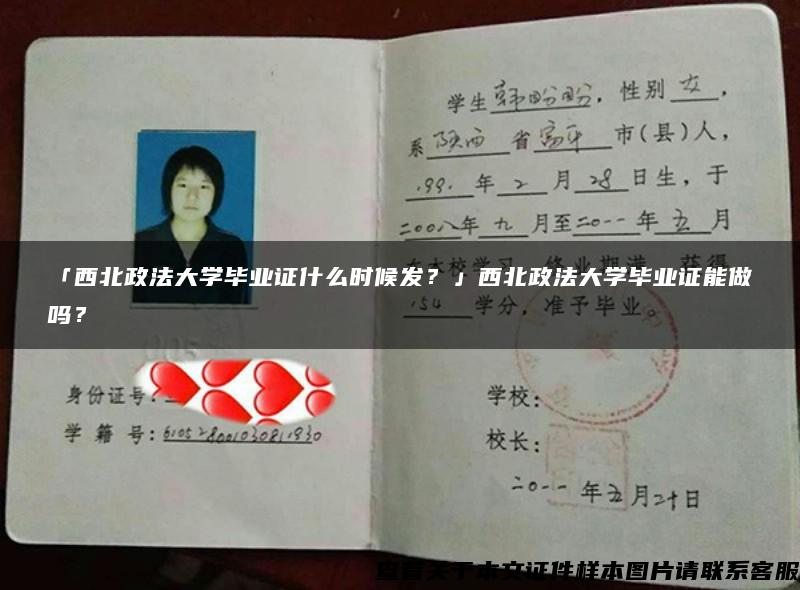 身份证号:
学 籍 号:610528001030811930
学生韩盼盼,性别女,
系陕西省富平市(县)人,
1991年2月28日生,于
二00八年九月至二0一一年五月
在本校学习 修业期满 获得
154学分,准予毕业。
「西北政法大学毕业证什么时候发？」西北政法大学毕业证能做
吗？
学校:
校长:
二0一一年五月二十日
查看关于本文证件样本图片请联系客服